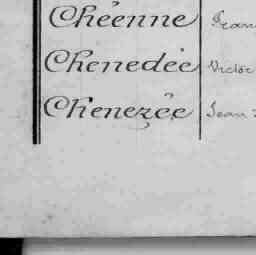 Chéenne Fran
Chenedée Victor
Chenezée Jean